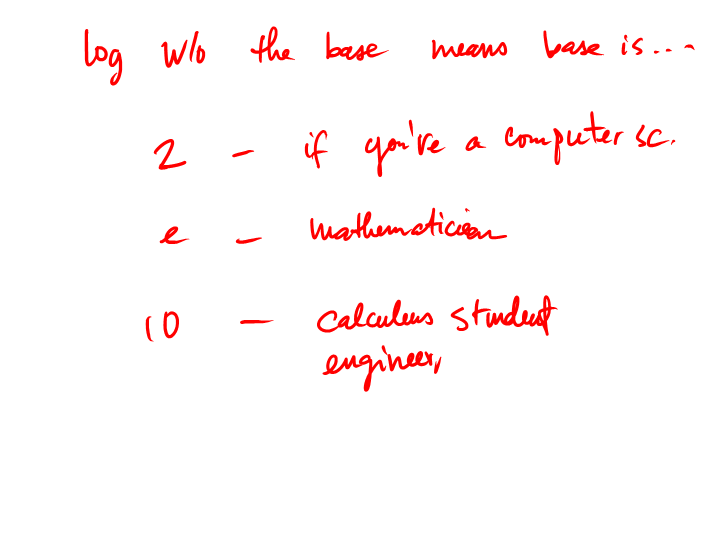 log w/o the base means base is...
2 - if you're a computer sc.
e - mathematician
10 - calculus student
engineer,